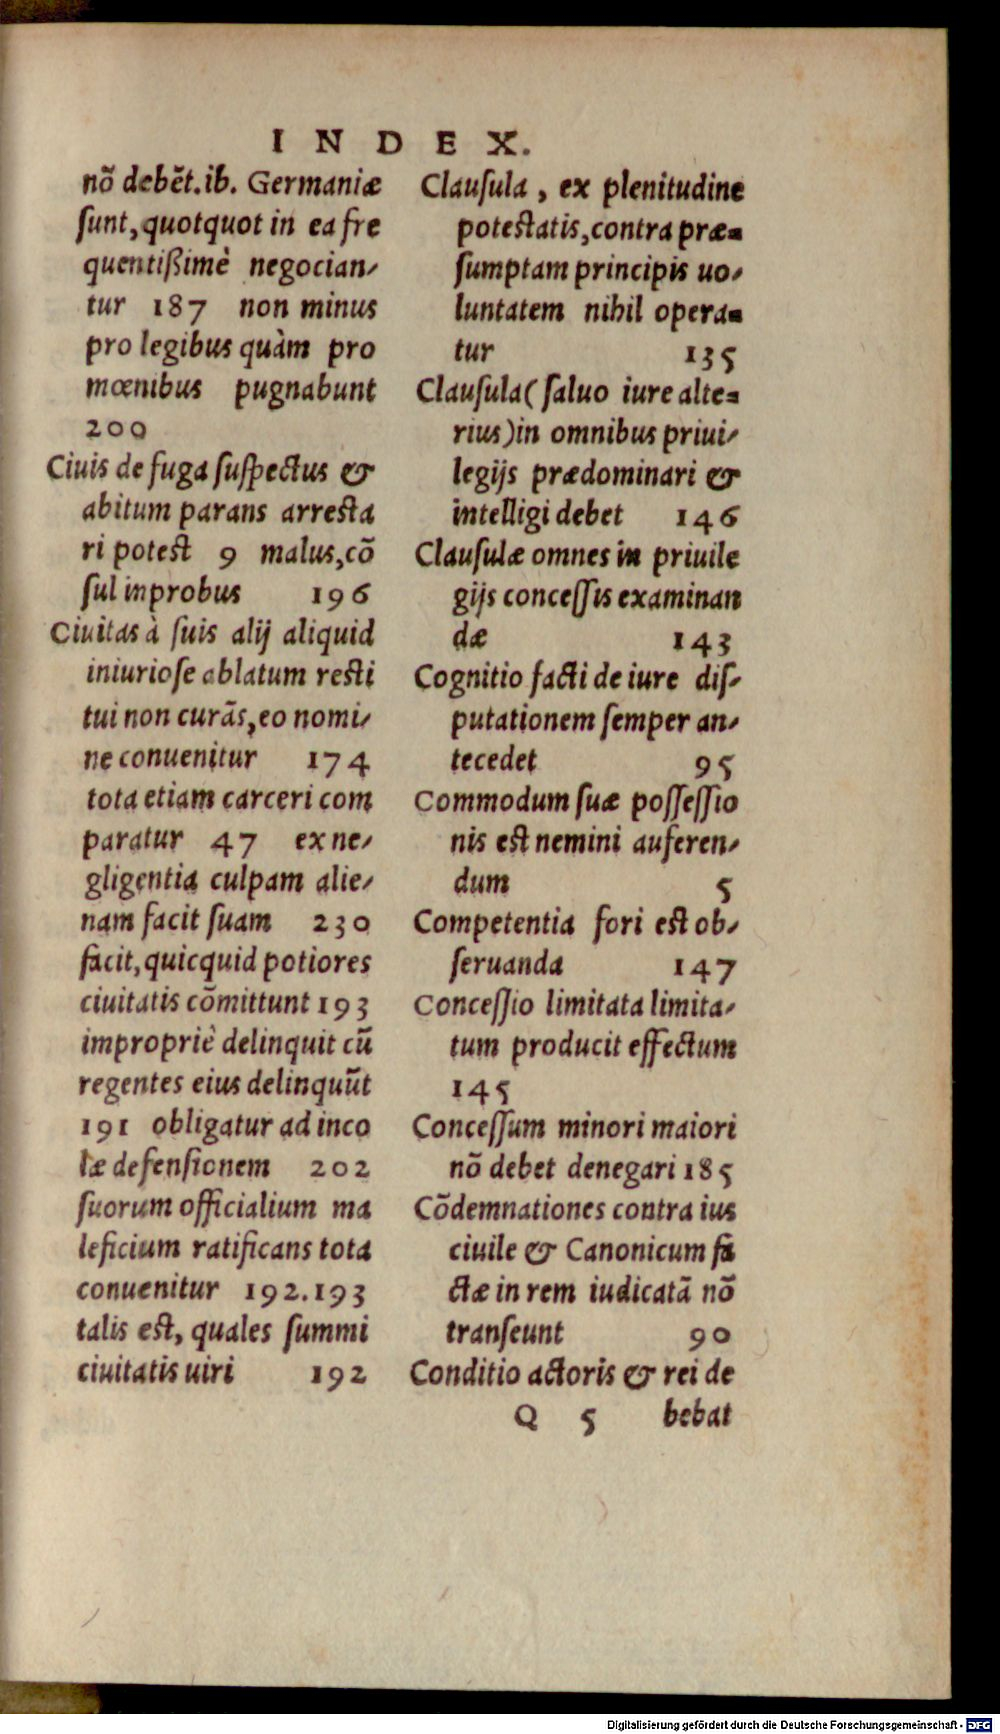 INDEX.
nõ debẽt.ib. Germaniæ
ſunt,quotquot in ea fre
quentißimè negocian-
tur 187 non minus
pro legibus quàm pro
mœnibus pugnabunt
200
Ciuis de fuga ſuſpectus &
abitum parans arreſta
ri poteſt 9 malus,cõ
ſul inprobus 196
Ciuitas à ſuis alij aliquid
iniurioſe ablatum reſti
tui non curãs,eo nomi-
ne conuenitur 174
tota etiam carceri com
paratur 47 ex ne-
gligentia culpam alie-
nam facit ſuam 230
facit,quicquid potiores
ciuitatis cõmittunt 193
impropriè delinquit cũ
regentes eius delinquũt
191 obligatur ad inco
læ defenſionem 202
ſuorum officialium ma
leficium ratificans tota
conuenitur 192.193
talis eſt, quales ſummi
ciuitatis uiri 192
Clauſula , ex plenitudine
poteſtatis,contra præ-
ſumptam principis uo-
luntatem nihil opera-
tur 135
Clauſula( ſaluo iure alte-
rius)in omnibus priui-
legijs prædominari &
intelligi debet 146
Clauſulæ omnes in priuile
gijs conceſſis examinan
dæ 143
Cognitio facti de iure diſ-
putationem ſemper an-
tecedet 95
Commodum ſuæ poſſeſſio
nis eſt nemini auferen-
dum 5
Competentia fori eſt ob-
ſeruanda 147
Conceſſio limitata limita-
tum producit effectum
145
Conceſſum minori maiori
nõ debet denegari 185
Cõdemnationes contra ius
ciuile & Canonicum fa
ctæ in rem iudicatã nõ
tranſeunt 90
Conditio actoris & rei de
Q 5 bebat
Digitalisierung gefördert durch die Deutsche Forschungsgemeinschaft - DFG